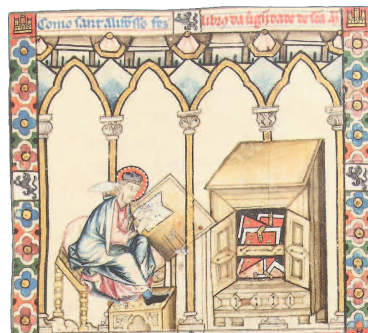 Como sant alifõsso fez libro da uirgĩidade de sc̃a M̃